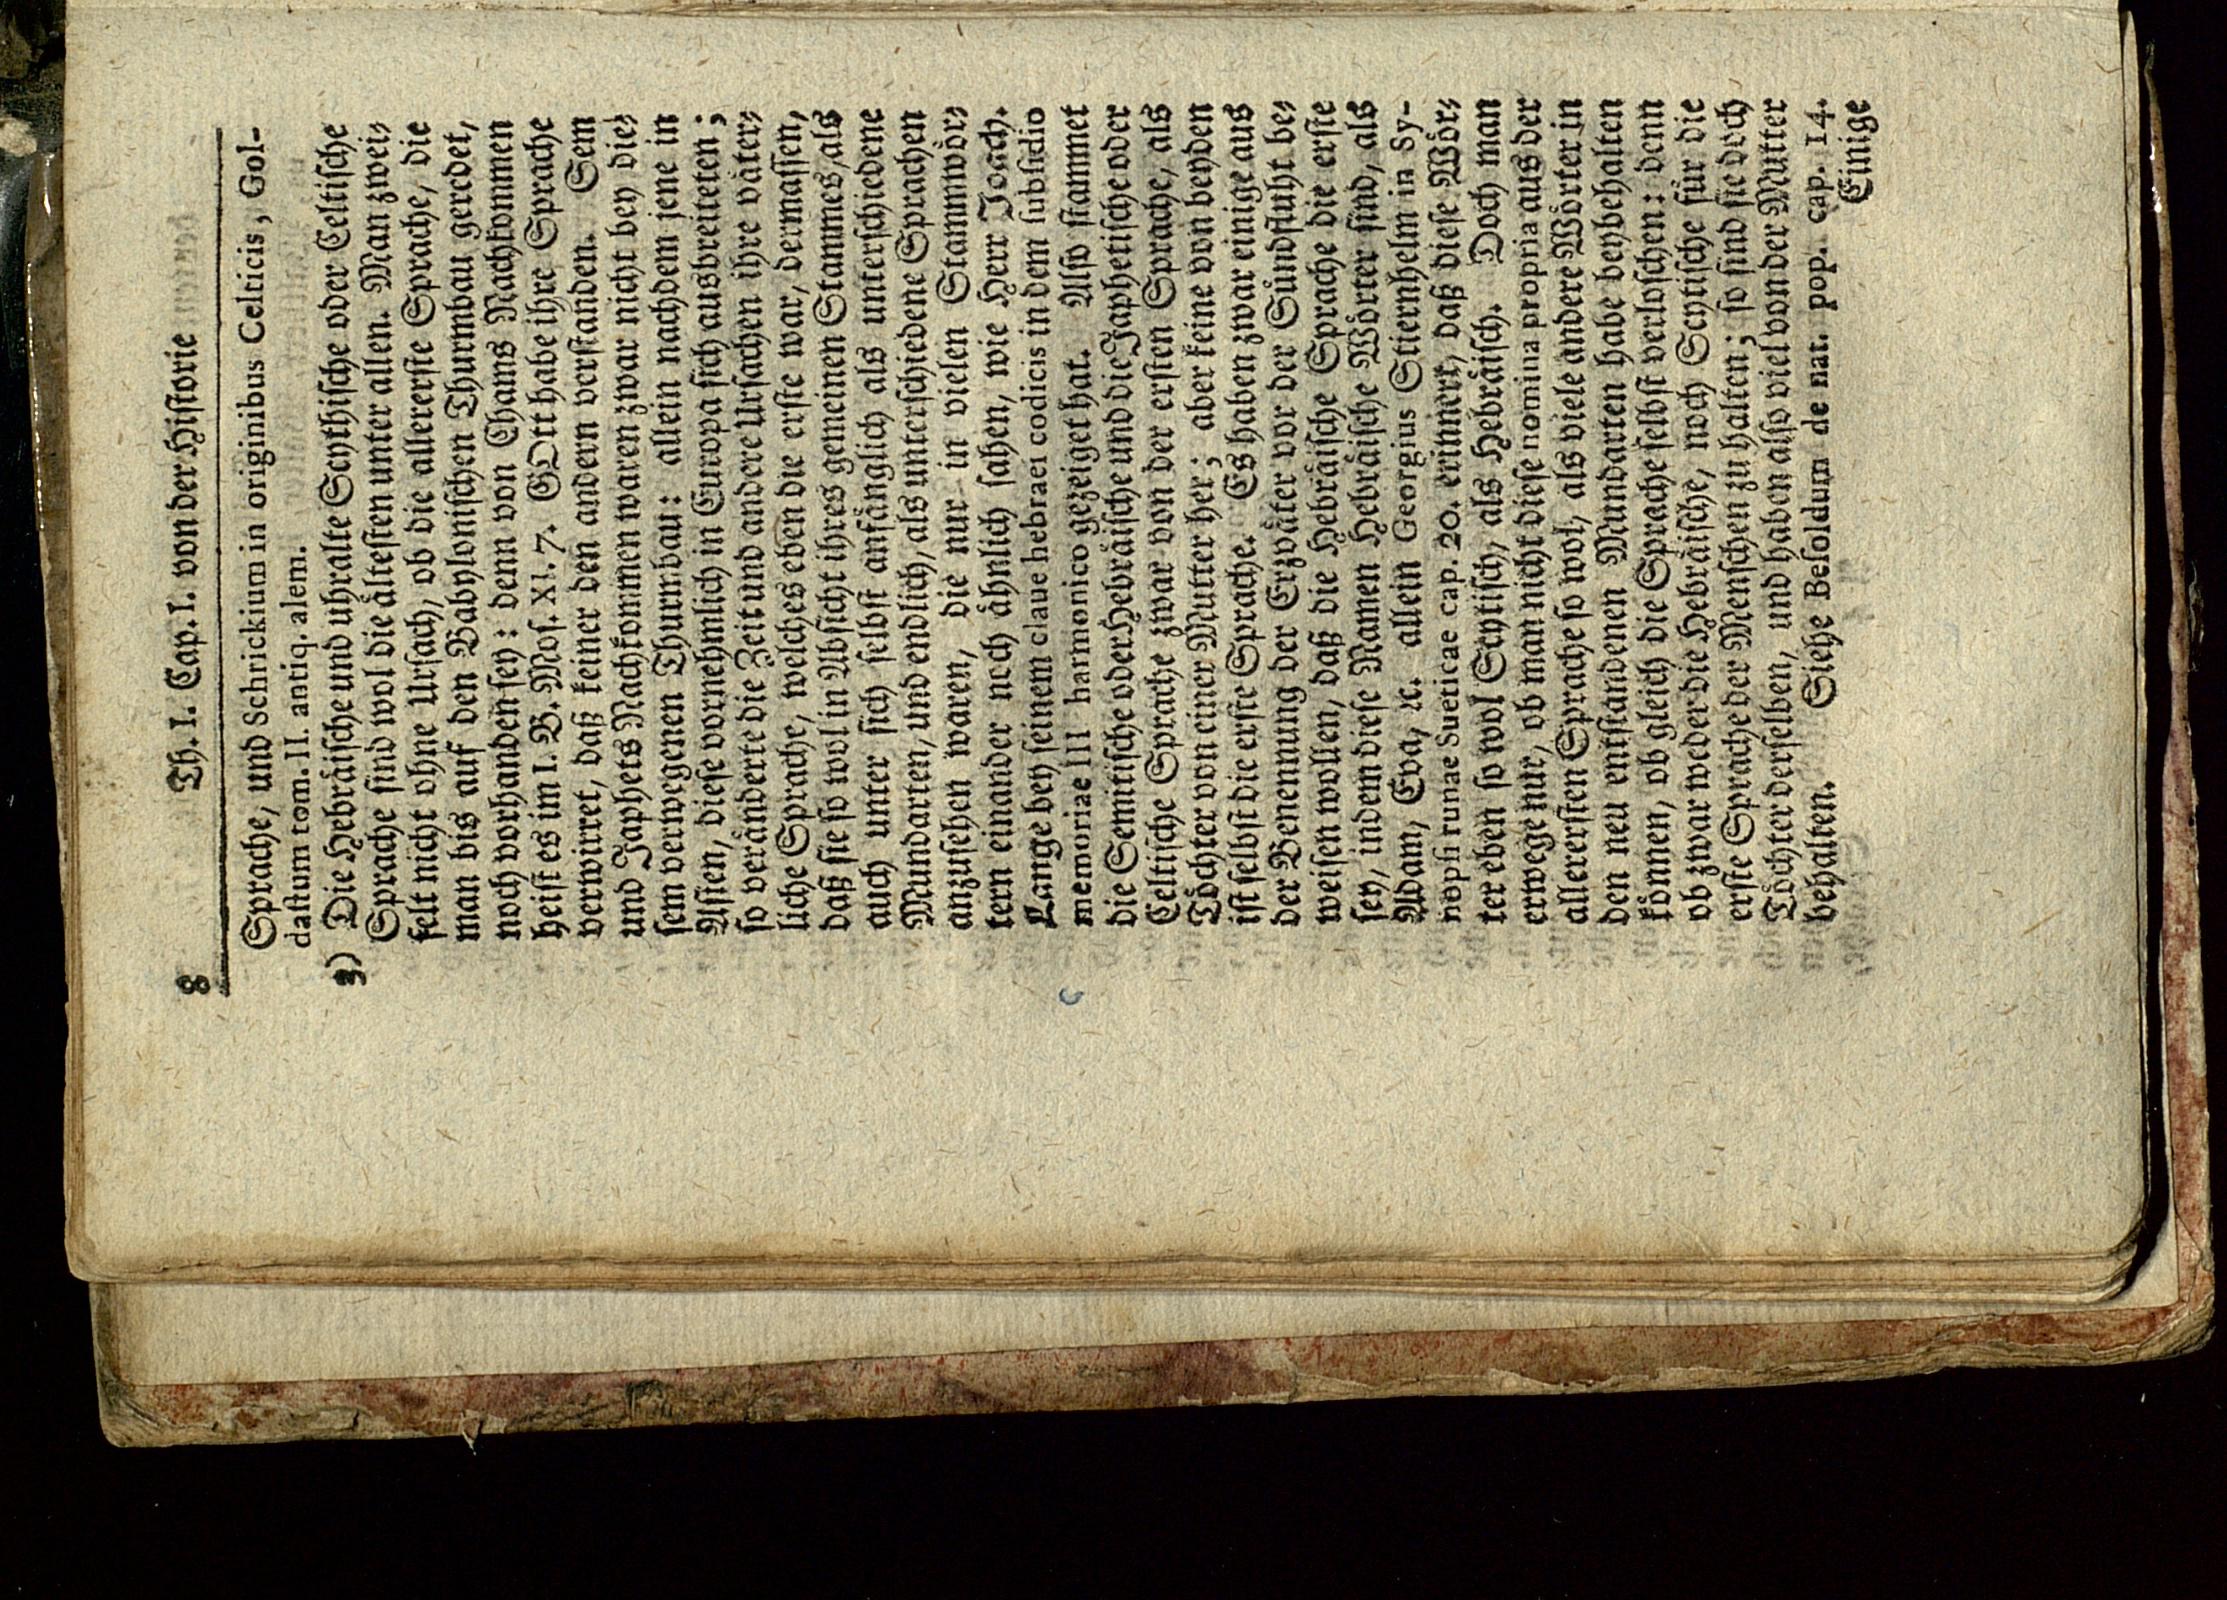 8 Th. I. Cap. I. von der Historie
Sprache, und Schrickium in originibus Celticis, Gol-
dastum tom. II. antiq. alem.
3) Die Hebräische und uhralte Scythische oder Celtische
Sprache sind wol die ältesten unter allen. Man zwei-
felt nicht ohne Ursach, ob die allererste Sprache, die
man bis auf den Babylonischen Thurmbau geredet,
noch vorhanden sey: denn von Chams Nachkommen
heist es im I. B. Mos. XI. 7. GOtt habe ihre Sprache
verwirret, daß keiner den andern verstanden. Sem
und Japhets Nachkommen waren zwar nicht bey die-
sem verwegenen Thurmbau: allein nachdem jene in
Asien, diese vornehmlich in Europa sich ausbreiteten;
so veränderte die Zeit und andere Ursachen ihre väter-
liche Sprache, welches eben die erste war, dermassen,
daß sie so wol in Absicht ihres gemeinen Stammes, als
auch unter sich selbst anfänglich als unterschiedene
Mundarten, und endlich, als unterschiedene Sprachen
anzusehen waren, die nur in vielen Stammwör-
tern einander noch ähnlich sahen, wie Herr Joach.
Lange bey seinem claue hebraei codicis in dem subsidio
memoriae III harmonico gezeiget hat. Also stammet
die Semitische oder Hebräische und die Japhetische oder
Celtische Sprache zwar von der ersten Sprache, als
Töchter von einer Mutter her; aber keine von beyden
ist selbst die erste Sprache. Es haben zwar einige aus
der Benennung der Erzväter vor der Sündfluht be-
weisen wollen, daß die Hebräische Sprache die erste
sey, indem diese Namen Hebräische Wörter sind, als
Adam, Eva, ꝛc. allein Georgius Stiernhelm in Sy-
nopsi runae Sueticae cap. 20. erinnert, daß diese Wör-
ter eben so wol Scytisch, als Hebräisch. Doch man
erwege nur, ob man nicht diese nomina propria aus der
allerersten Sprache so wol, als viele andere Wörter in
den neu entstandenen Mundarten habe beybehalten
können, ob gleich die Sprache selbst verloschen: denn
ob zwar weder die Hebräische, noch Scytische für die
erste Sprache der Menschen zu halten; so sind sie doch
Töchter derselben, und haben also viel von der Mutter
behalten. Siehe Besoldum de nat. pop. cap. 14.
Einige